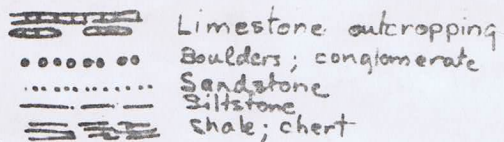 Limestone outcropping
Boulders; conglomerate
Sandstone
Siltstone
Shale; chert